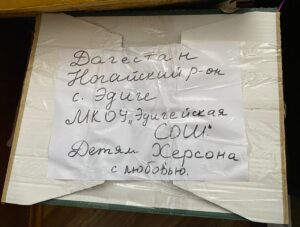 Дагестан
Ногайский р-он
с. Эдиге
МКОУ „Эдигейская
СОШ"
Детям Херсона
с любовью.